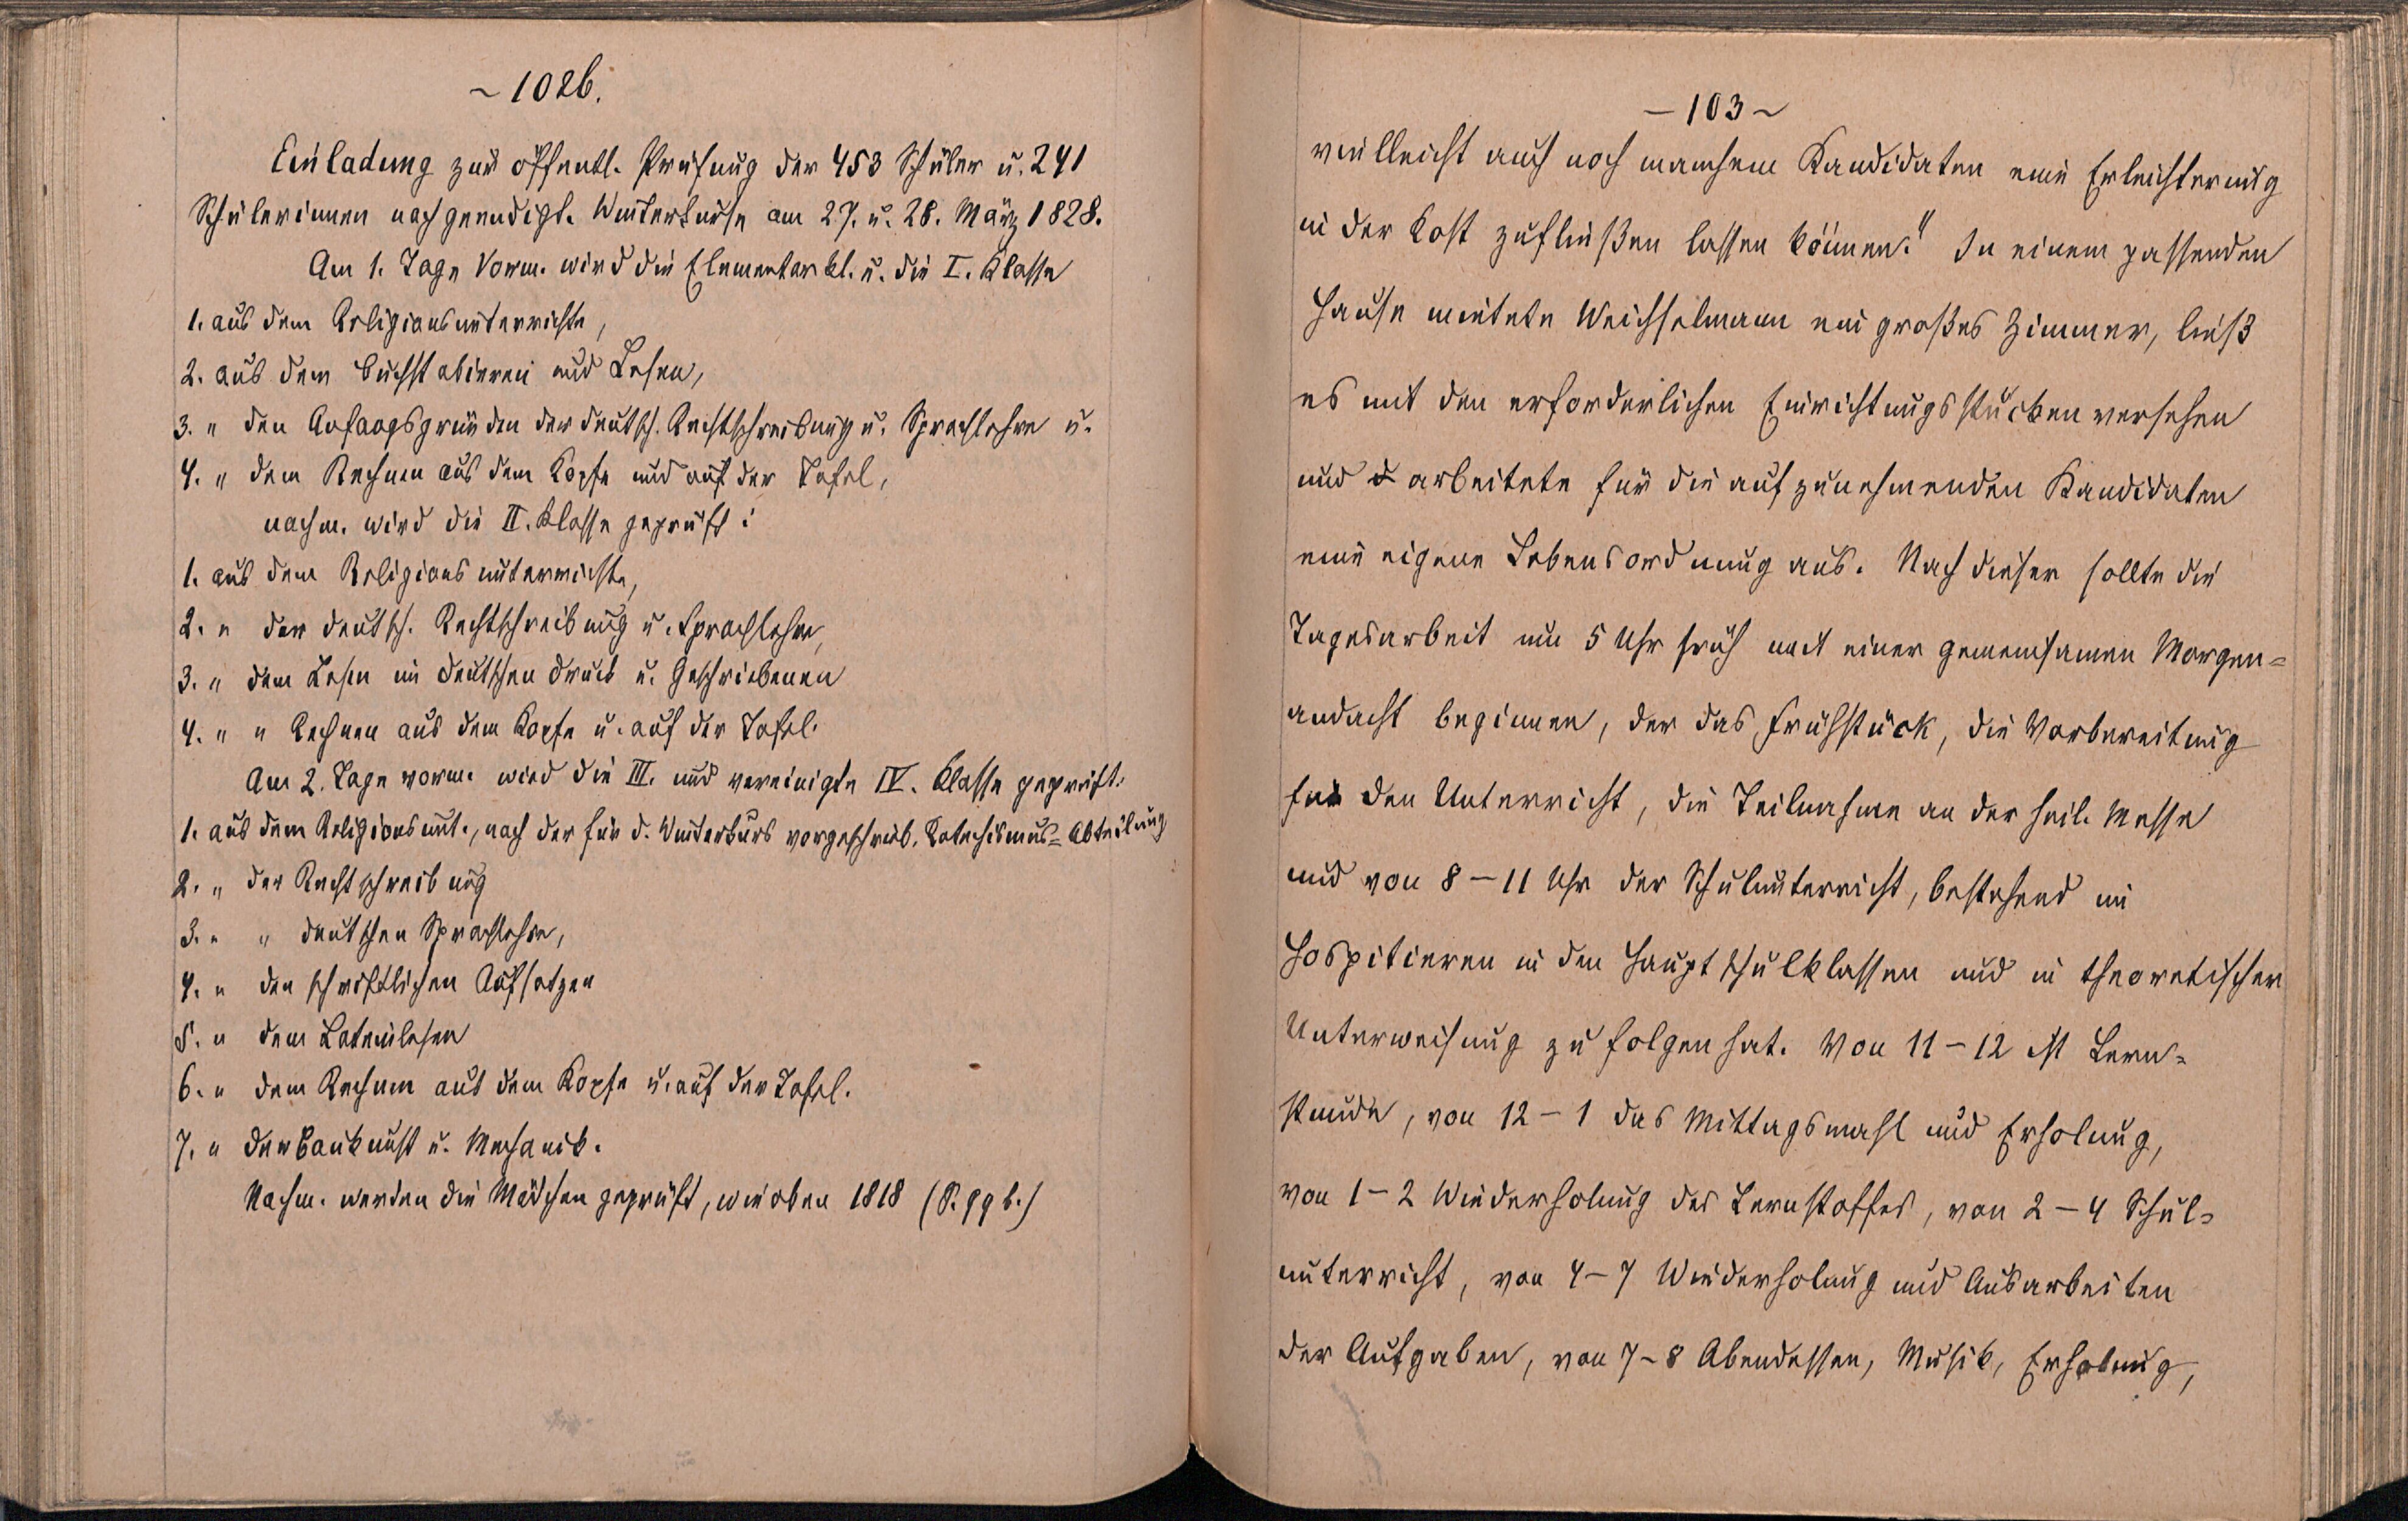 ~ 102b.
Einladung zur öffentl. Prüfung der 453 Schüler u. 241
Schülerinnen nach geendigt. Winterkurse am 27. u. 28. März 1828.
Am 1. Tage Vorm. wird die Elementarkl. u. die I. Klasse
1. aus dem Religionsunterrichte,
2. aus dem Buchstabieren und Lesen,
3. " den Anfangsgründen der deutsch. Rechtschreibung u. Sprachlehre u.
4. " dem Rechnen aus dem Kopfe und auf der Tafel,
nachm. wird die II. Klasse geprüft:
1. aus dem Religionsunterrichte,
2. " der deutsch. Rechtschreibung u. Sprachlehre,
3. " dem Lesen im deutschen Druck u. Geschriebenen
4. " " Rechnen aus dem Kopfe u. auf der Tafel.
Am 2. Tage vorm. wird die III. und vereinigte IV. Klasse geprüft:
1. aus dem Religionsunt., nach der für d. Winterkurs vorgeschrieb. Katechismus=Abteilung
2. " der Rechtschreibung
3. " " deutschen Sprachlehre,
4. " den schriftlichen Aufsatzen
5. " dem Lateinlesen
6. " dem Rechnen aus dem Kopfe u. auf der Tafel.
7. " der Baukunst u. Mechanik.
Nachm. werden die Mädchen geprüft, wie oben 1818 (S. 99 b.)
— 103 ~
vielleicht auch noch manchem Kandidaten eine Erleichterung
in der Kost zufließen lassen können." In einem passenden
Hause mietete Weichselmann ein großes Zimmer, ließ
es mit den erforderlichen Einrichtungsstücken versehen
und arbeitete für die aufzunehmenden Kandidaten
eine eigene Lebensordnung aus. Nach dieser sollte die
Tagesarbeit um 5 Uhr früh mit einer gemeinsamen Morgen=
andacht beginnen, der das Frühstück, die Vorbereitung
für den Unterricht, die Teilnahme an der heil. Messe
und von 8 — 11 Uhr der Schulunterricht, bestehend im
Hospitieren in den Hauptschulklassen und in theoretischer
Unterweisung zu folgen hat. Von 11 — 12 ist Lern=
stunde, von 12 — 1 das Mittagsmahl und Erholung,
von 1 — 2 Wiederholung des Lernstoffes, von 2 — 4 Schul=
unterricht, von 4 — 7 Wiederholung und Ausarbeiten
der Aufgaben, von 7 — 8 Abendessen, Musik, Erholung,